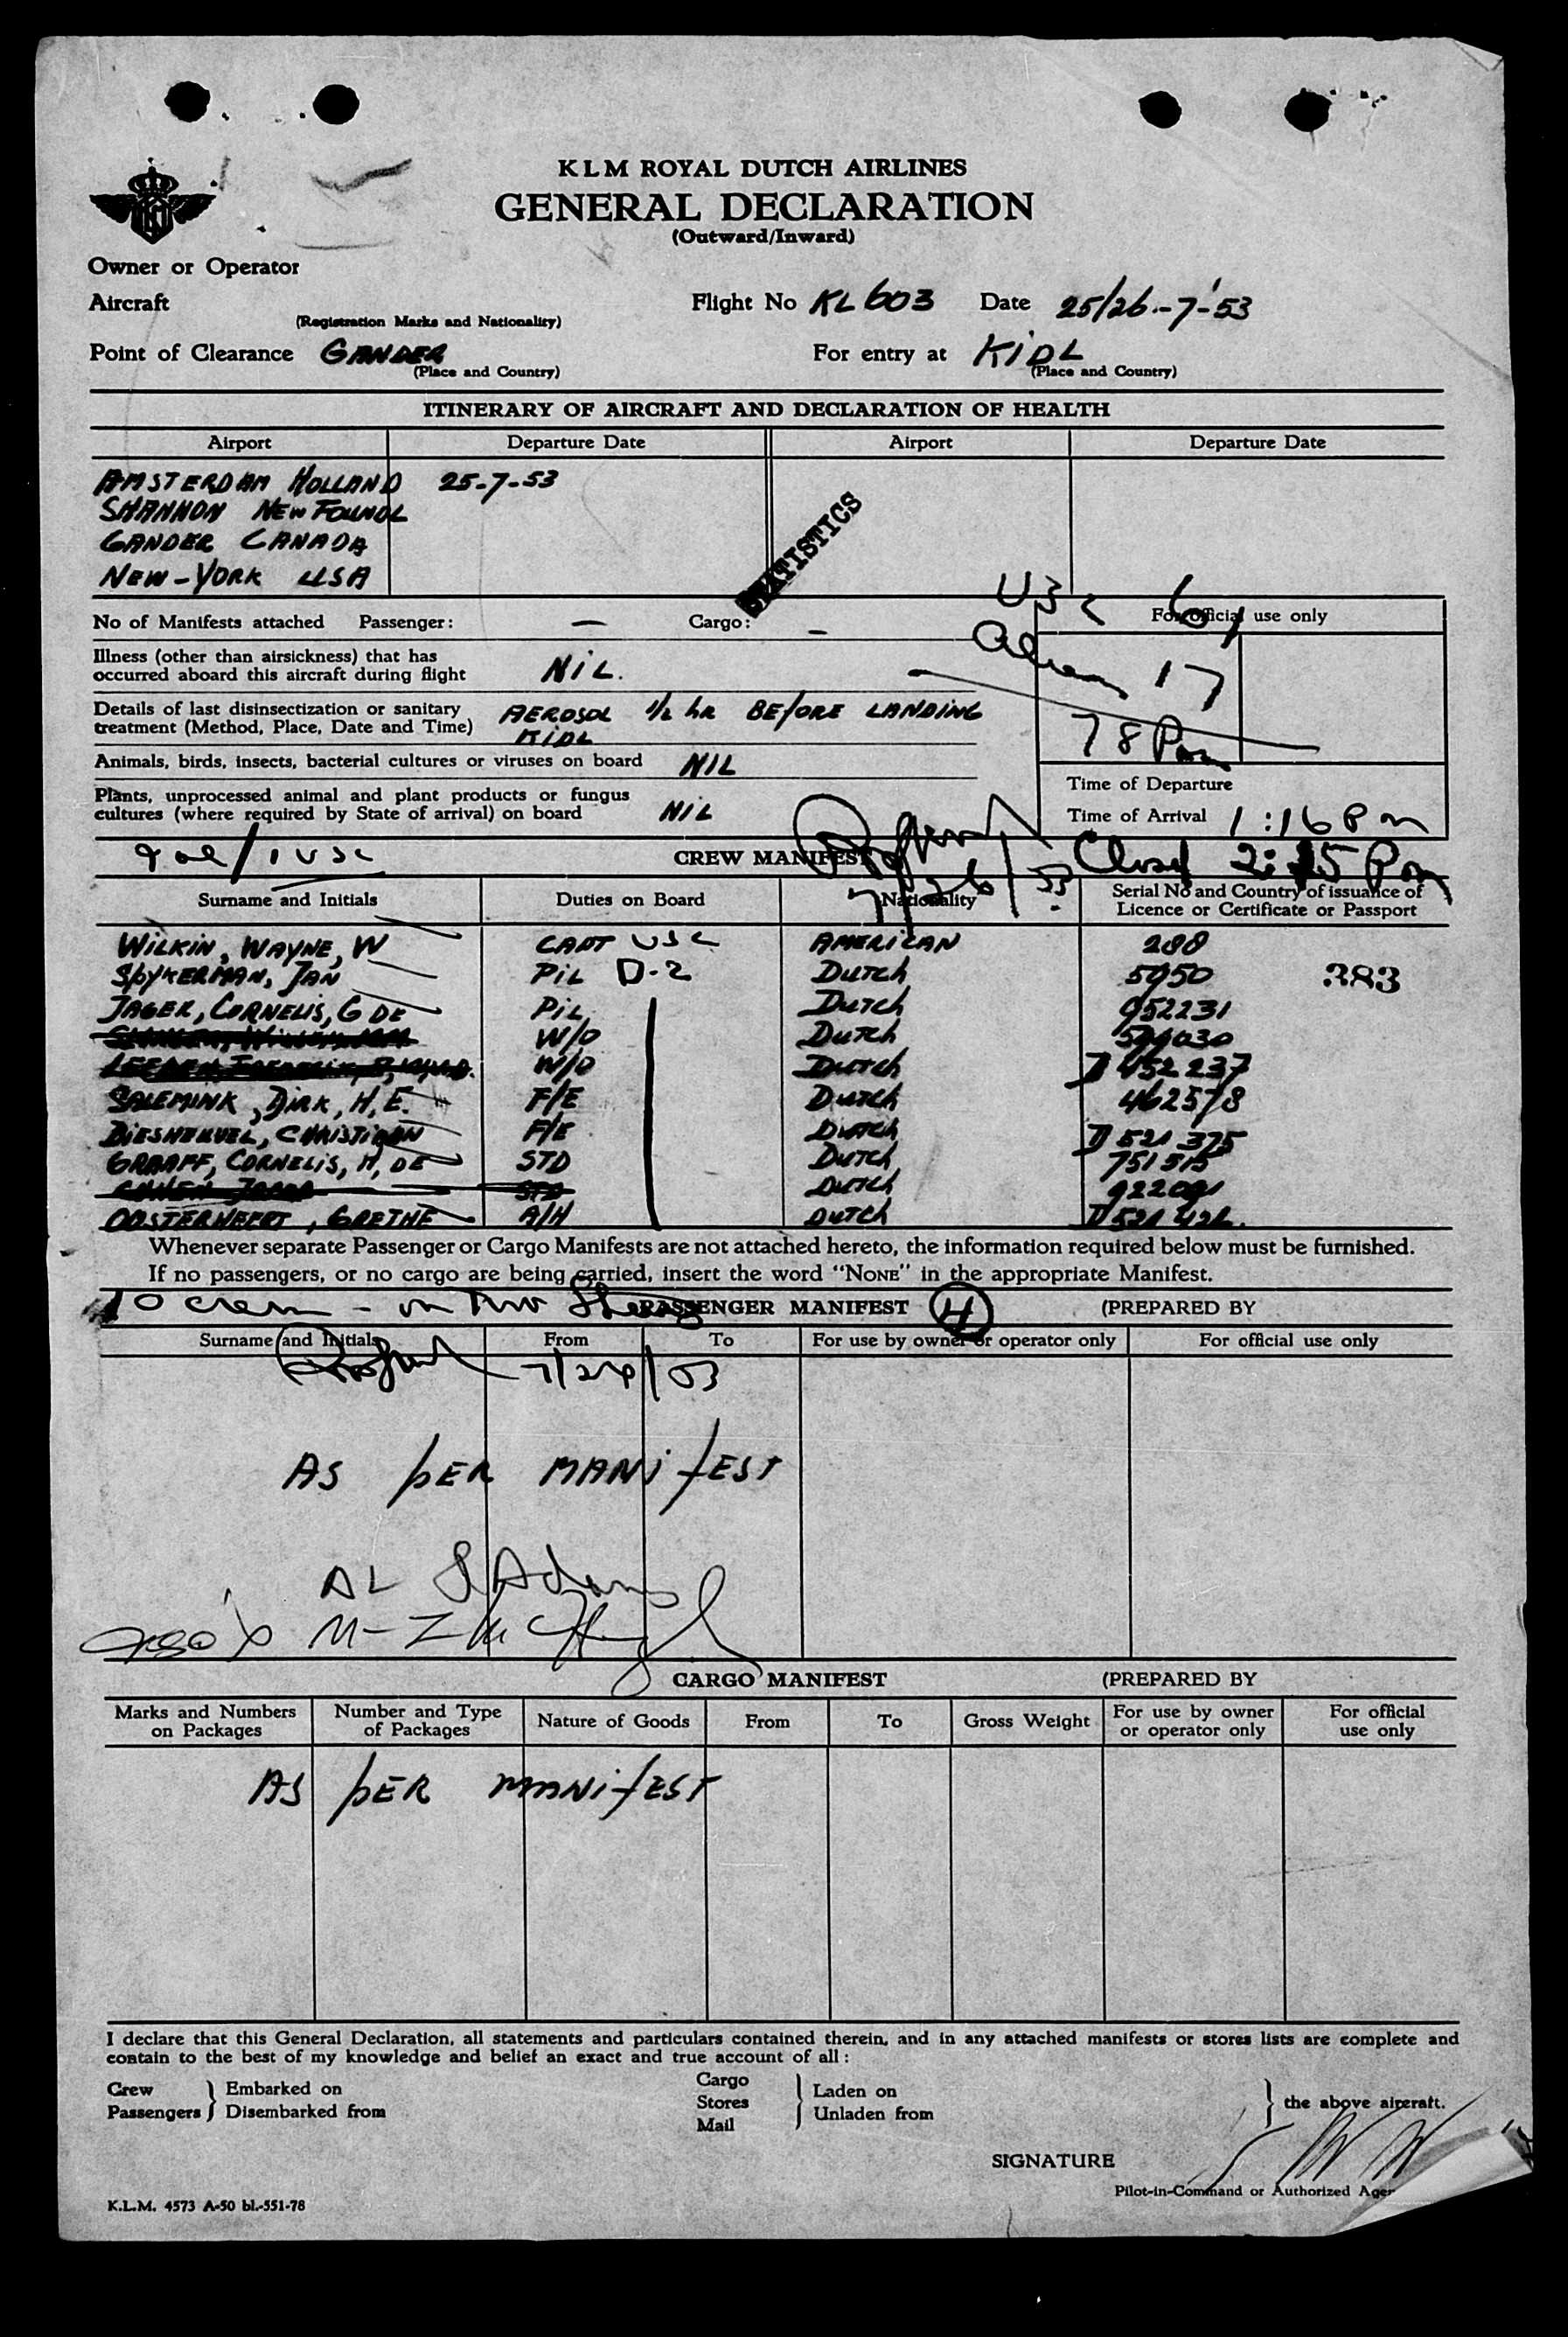 KLM ROYAL DUTCH AIRLINES
GENERAL DECLARATION
(Outward/Inward)
Owner or Operator
Aircraft
(Registration Marks and Nationality)
Flight No KL 603 Date 25/26-7-'53
Point of Clearance GANDER
(Place and Country)
For entry at KIDL
(Place and Country)
ITINERARY OF AIRCRAFT AND DECLARATION OF HEALTH
Airport Departure Date Airport Departure Date
AMSTERDAM HOLLAND 25-7-53
SHANNON NEW FOUNDL
GANDER CANADA
NEW-YORK USA
STATISTICS
No of Manifests attached Passenger: — Cargo: —
For official use only
USC 61
Aliens 17
78 Pass
Illness (other than airsickness) that has
occurred aboard this aircraft during flight NIL.
Details of last disinsectization or sanitary
treatment (Method, Place, Date and Time) AEROSOL 1/2 hR BEFORE LANDING
KIDL
Animals, birds, insects, bacterial cultures or viruses on board NIL
Plants, unprocessed animal and plant products or fungus
cultures (where required by State of arrival) on board NIL
Time of Departure
Time of Arrival 1:16 Pm
9 al/1 USC
CREW MANIFEST
Closed Pm
7/26/53
Surname and Initials Duties on Board Nationality Serial No and Country of issuance of
Licence or Certificate or Passport
WILKIN, WAYNE, W CAPT USC AMERICAN 288
SPYKERMAN, JAN PIL D-2 DUTCH 5950 383
JAGER, CORNELIS, G DE PIL DUTCH 952231
W/O DUTCH
W/O DUTCH D 452 237
SALEMINK, DIRK, H, E. F/E DUTCH 462578
F/E DUTCH D 521 375
GRAAFF, CORNELIS, H, DE STD DUTCH 751515
STD DUTCH
GRETHE A/H DUTCH
Whenever separate Passenger or Cargo Manifests are not attached hereto, the information required below must be furnished.
If no passengers, or no cargo are being carried, insert the word "NONE" in the appropriate Manifest.
10 crew - on two Sheets
PASSENGER MANIFEST 4 (PREPARED BY
Surname and Initials From To For use by owner or operator only For official use only
AS PER MANIFEST
CARGO MANIFEST (PREPARED BY
Marks and Numbers
on Packages
Number and Type
of Packages
Nature of Goods From To Gross Weight
For use by owner
or operator only
For official
use only
AS PER MANIFEST
I declare that this General Declaration, all statements and particulars contained therein, and in any attached manifests or stores lists are complete and
contain to the best of my knowledge and belief an exact and true account of all:
Crew
Passengers
Embarked on
Disembarked from
Cargo
Stores
Mail
Laden on
Unladen from
the above aircraft.
SIGNATURE
Pilot-in-Command or Authorized Agen
K.L.M. 4573 A-50 bl.-551-78